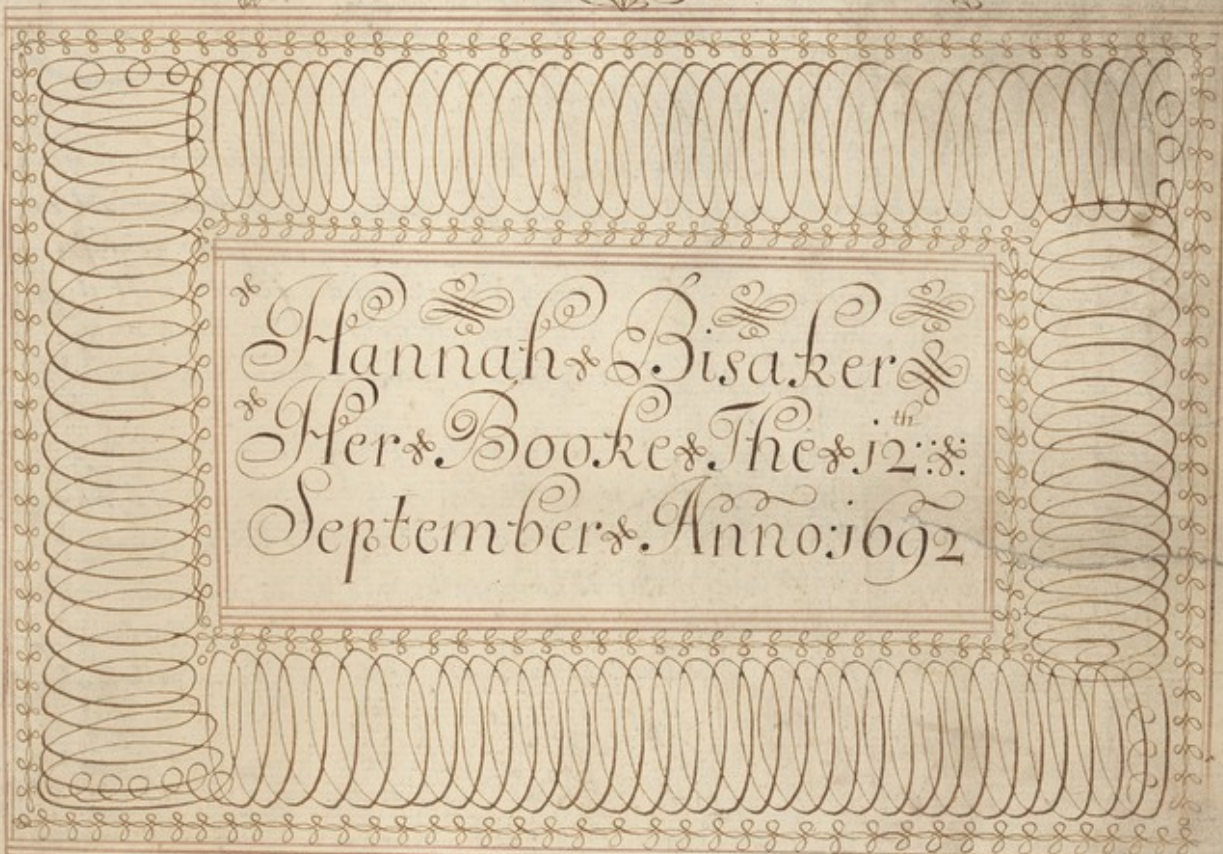 Hannah Bisaker
Her Booke The 12th:
September Anno:1692